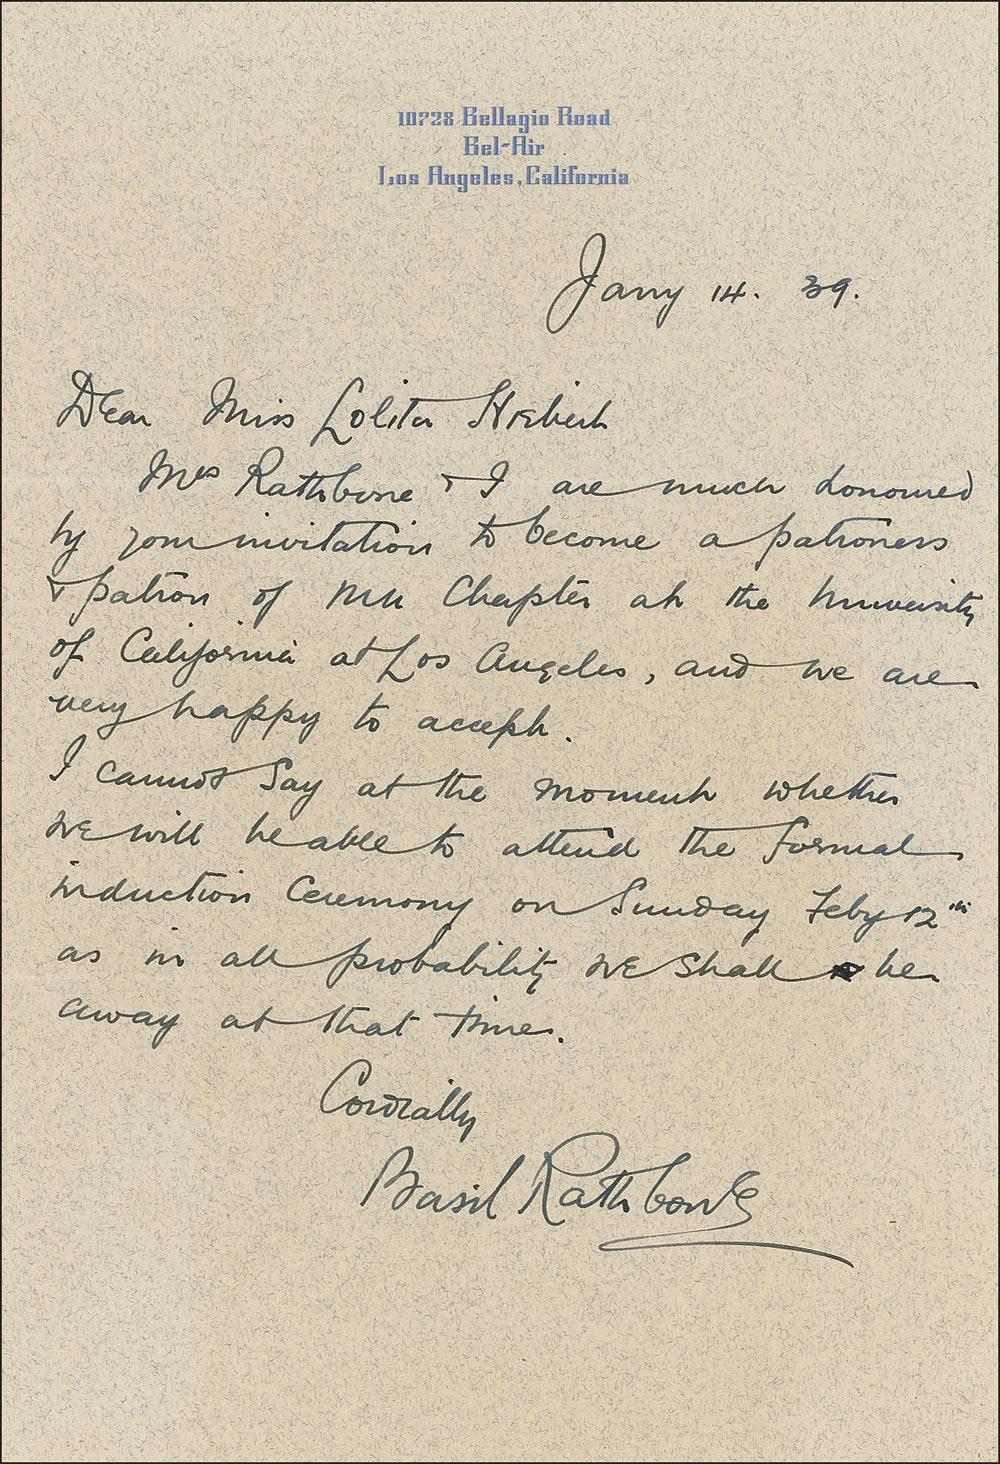 10728 Bellagio Road
Bel-Air
Los Angeles, California
Jany 14. 39.
Dear Miss Lolita Hiebert
Mrs Rathbone & I are much honoured
by your invitation to become a patroness
& patron of Mu Chapter at the University
of California at Los Angeles, and we are
very happy to accept.
I cannot say at the moment whether
we will be able to attend the formal
induction ceremony on Sunday Feby 12th
as in all probability we shall be
away at that time.
Cordially
Basil Rathbone